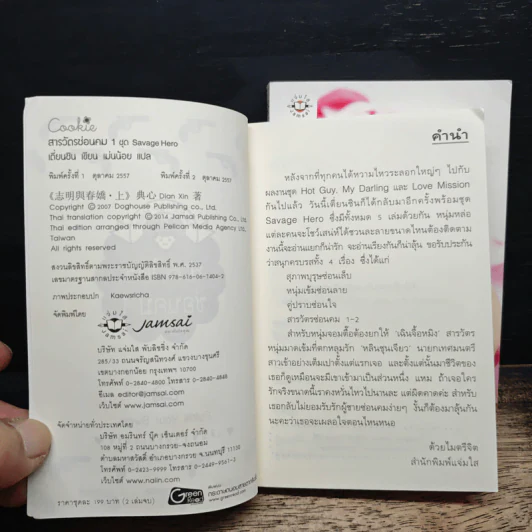 Cookie
สารวัตรซ่อนคม 1 ชุด Savage Hero
เตี่ยนซิน เขียน เม่นน้อย แปล
พิมพ์ครั้งที่ 1 ตุลาคม 2557 พิมพ์ครั้งที่ 2 ตุลาคม 2557
《志明與春嬌・上》典心 Dian Xin 著
Copyright © 2007 Doghouse Publishing Co., Ltd.
Thai translation copyright © 2014 Jamsai Publishing Co., Ltd.
Thai edition arranged through Pelican Media Agency Ltd.,
Taiwan
All rights reserved
สงวนลิขสิทธิ์ตามพระราชบัญญัติลิขสิทธิ์ พ.ศ. 2537
เลขมาตรฐานสากลประจำหนังสือ ISBN 978-616-06-1404-2
ภาพประกอบปก Kaewsricha
จัดพิมพ์โดย
jamsai
บริษัท แจ่มใส พับลิชชิ่ง จำกัด
285/33 ถนนจรัญสนิทวงศ์ แขวงบางขุนศรี
เขตบางกอกน้อย กรุงเทพฯ 10700
โทรศัพท์ 0-2840-4800 โทรสาร 0-2840-4848
อีเมล editor@jamsai.com
เว็บไซต์ www.jamsai.com
จัดจำหน่ายทั่วประเทศโดย
บริษัท อมรินทร์ บุ๊ค เซ็นเตอร์ จำกัด
108 หมู่ที่ 2 ถนนบางกรวย-จงถนอม
ตำบลมหาสวัสดิ์ อำเภอบางกรวย จ.นนทบุรี 11130
โทรศัพท์ 0-2423-9999 โทรสาร
เว็บไซต์ www.naiin.com
ราคาชุดละ 199 บาท (2 เล่มจบ)
Green
คำนำ
หลังจากที่ทุกคนได้หวามไหวระลอกใหญ่ๆ ไปกับ
ผลงานชุด Hot Guy, My Darling และ Love Mission
กันไปแล้ว วันนี้เตี่ยนซินก็ได้กลับมาอีกครั้งพร้อมชุด
Savage Hero ซึ่งมีทั้งหมด 5 เล่มด้วยกัน หนุ่มหล่อ
แต่ละคนจะโชว์เสน่ห์ได้ชวนละลายขนาดไหนต้องติดตาม
งานนี้จะอ่านแยกก็น่ารัก จะอ่านเรียงกันก็น่าลุ้น ขอรับประกัน
ว่าสนุกครบรสทั้ง 4 เรื่อง ซึ่งได้แก่
สุภาพบุรุษซ่อนเล็บ
หนุ่มเข้มซ่อนลาย
คู่ปราบซ่อนใจ
สารวัตรซ่อนคม 1-2
สำหรับหนุ่มจอมดื้อต้องยกให้ 'เฉินจื้อหมิง' สารวัตร
หนุ่มมาดเข้มที่ตกหลุมรัก 'หลินชุนเจียว' นายกเทศมนตรี
สาวเข้าอย่างเต็มเปาตั้งแต่แรกเจอ และตั้งแต่นั้นมาชีวิตของ
เธอก็ดูเหมือนจะมีเขาเข้ามาเป็นส่วนหนึ่ง แหม ถ้าเจอใคร
รักจริงขนาดนี้เราคงหวั่นไหวไปนานละ แต่ผิดคาดค่ะ สำหรับ
เธอกลับไม่ยอมรับรักผู้ชายซ่อนคมง่ายๆ งั้นก็ต้องมาลุ้นกัน
นะคะว่าเธอจะเผลอใจตอนไหนหนอ
ด้วยไมตรีจิต
สำนักพิมพ์แจ่มใส